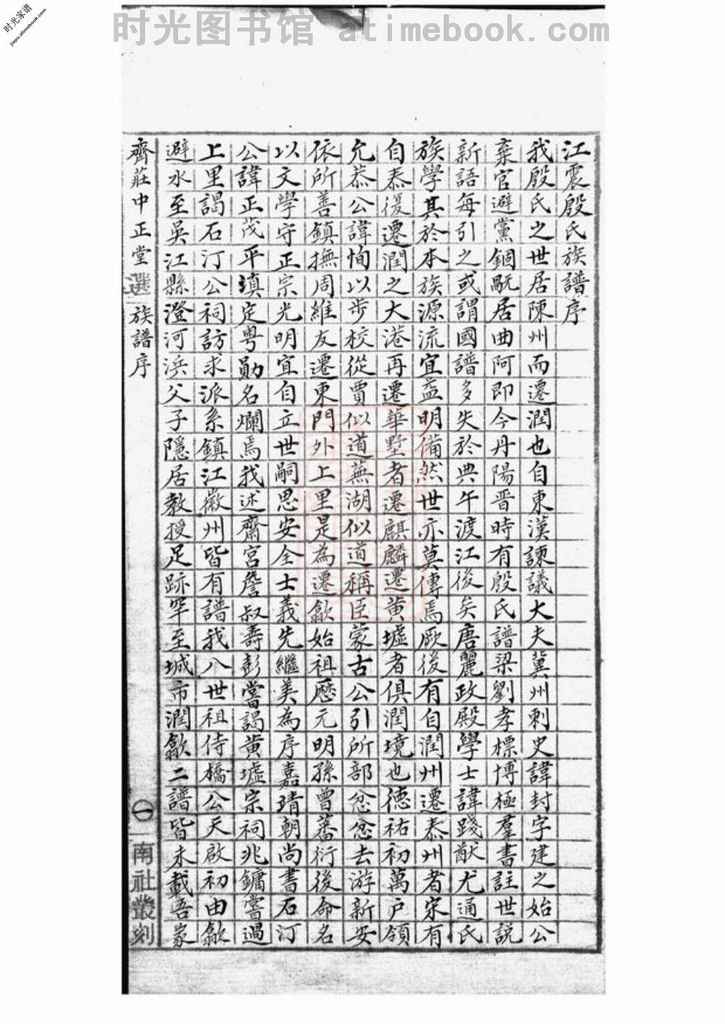 时光图书馆 atimebook.com
时光家谱
江震殷氏族譜序
我殷氏之世居陳州而遷潤也自東漢諫議大夫冀州刺史諱封字建之始公
棄官避黨錮毗居曲阿即今丹陽晋時有殷氏譜梁劉孝標博極羣書註世說
新語每引之或謂國譜多失於典午渡江後矣唐麗政殿學士諱踐猷尤通氏
族學其於本族源流宜益明備然世亦莫傳焉厥後有自潤州遷泰州者宋有
自泰復遷潤之大港再遷華墅者遷麒麟遷黄墟者俱潤境也德祐初萬户領
允恭公諱恂以步校從賈似道蕪湖似道稱臣蒙古公引所部忿忿去游新安
依所善鎮撫周維友遷東門外上里是為遷歙始祖歷元明孫曾蕃衍後命名
以文學守正宗光明宜自立世嗣思安全士義先繼美為序嘉靖朝尚書石汀
公諱正茂平滇定粤勛名爛焉我述齋宮詹叔壽彭嘗謁黄墟宗祠兆鏞嘗過
上里謁石汀公祠訪求派系鎮江徽州皆有譜我八世祖侍橋公天啟初由歙
避水至吴江縣澄河浜父子隱居教授足跡罕至城市潤歙二譜皆未載吾家
齊莊中正堂選 族譜序
一 南社叢刻